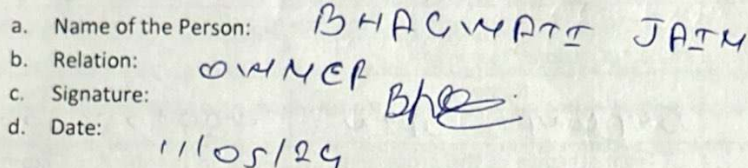 a. Name of the Person: BHAGWATI JAIN
b. Relation: OWNER
c. Signature:
d. Date: 11/05/24